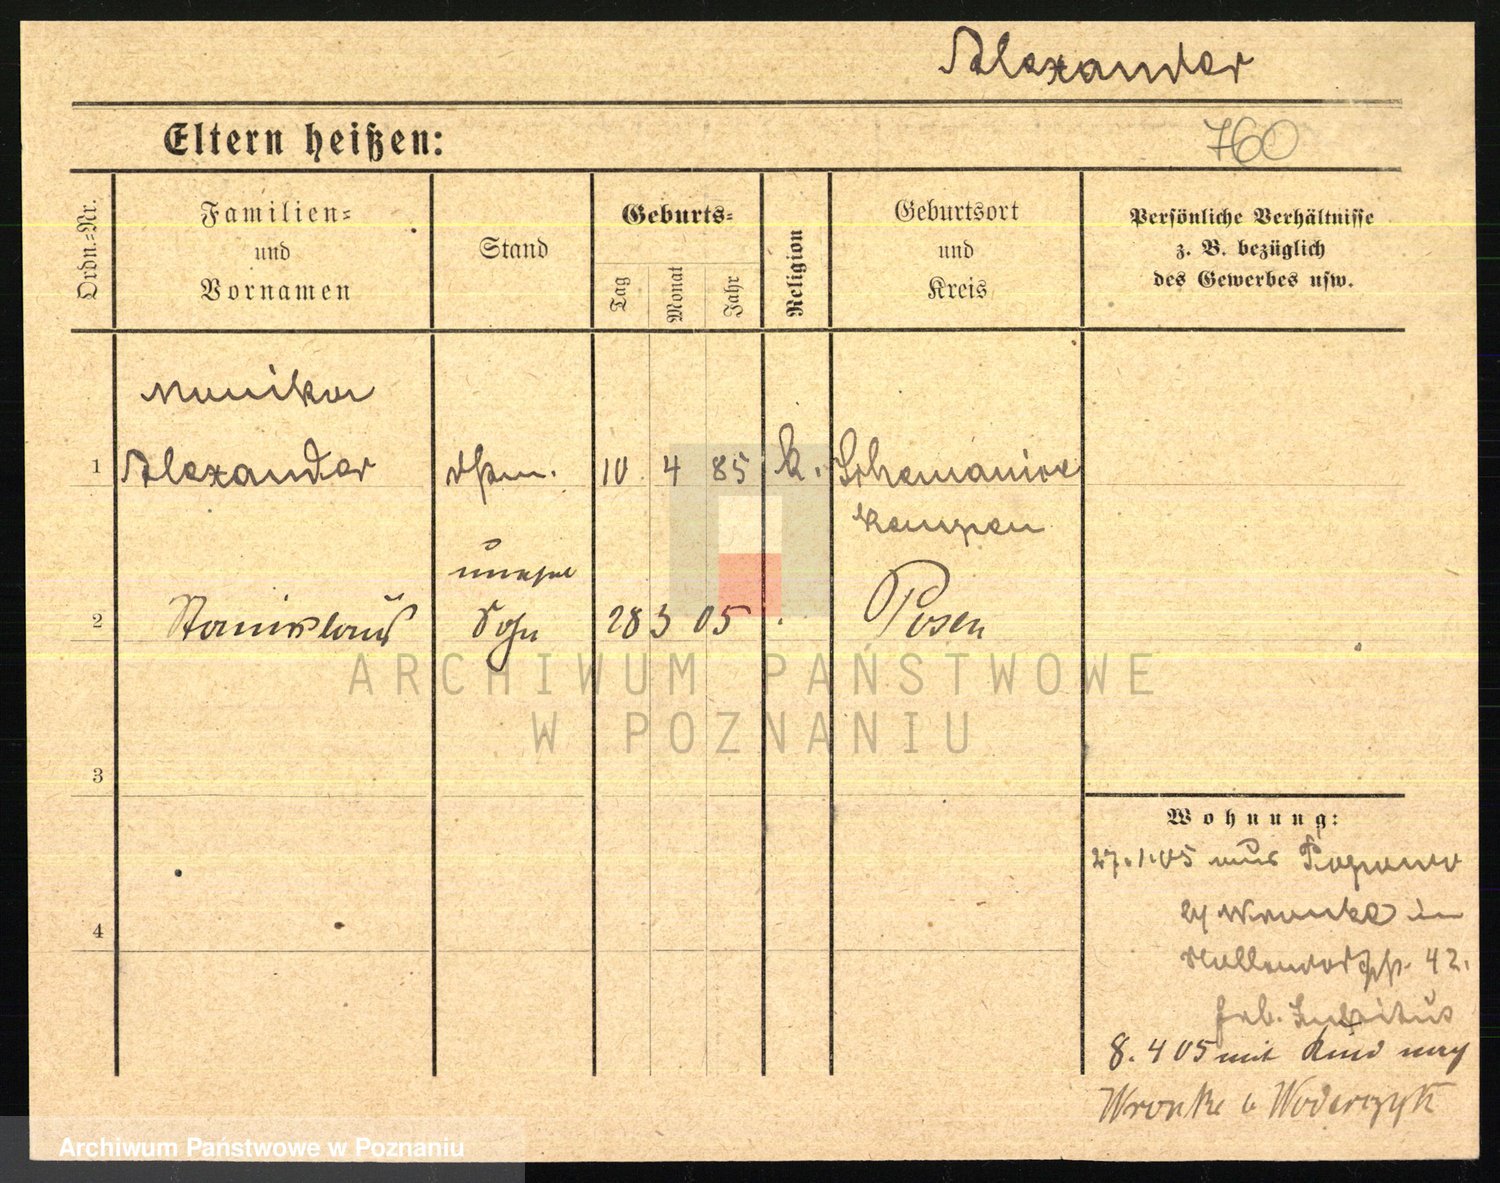 Alexander
Eltern heißen:
760
Ordn.-Nr.
Familien-
und
Vornamen
Stand
Geburts-
Tag
Monat
Jahr
Religion
Geburtsort
und
Kreis
Persönliche Verhältnisse
z. B. bezüglich
des Gewerbes usw.
Monika
1 Alexander 10 4 85 k.
Kempen
unehel
2 Stanislaus Sohn 28 3 05 Posen
ARCHIWUM PAŃSTWOWE
W POZNANIU
3
Wohnung:
27.1.05 aus
4
Wronke in
42.
8.4 05 mit Kind nach
Wronke b Woderczyk
Archiwum Państwowe w Poznaniu